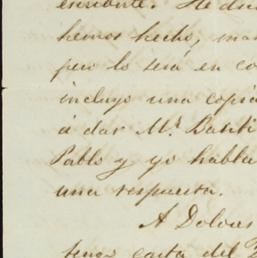 enviarte. He di
hemos hecho, man
pero lo será en co
incluyo una copia
á dar Mr. Basti
Pablo y yo habla
una respuesta.
A Dolores
tengo carta del